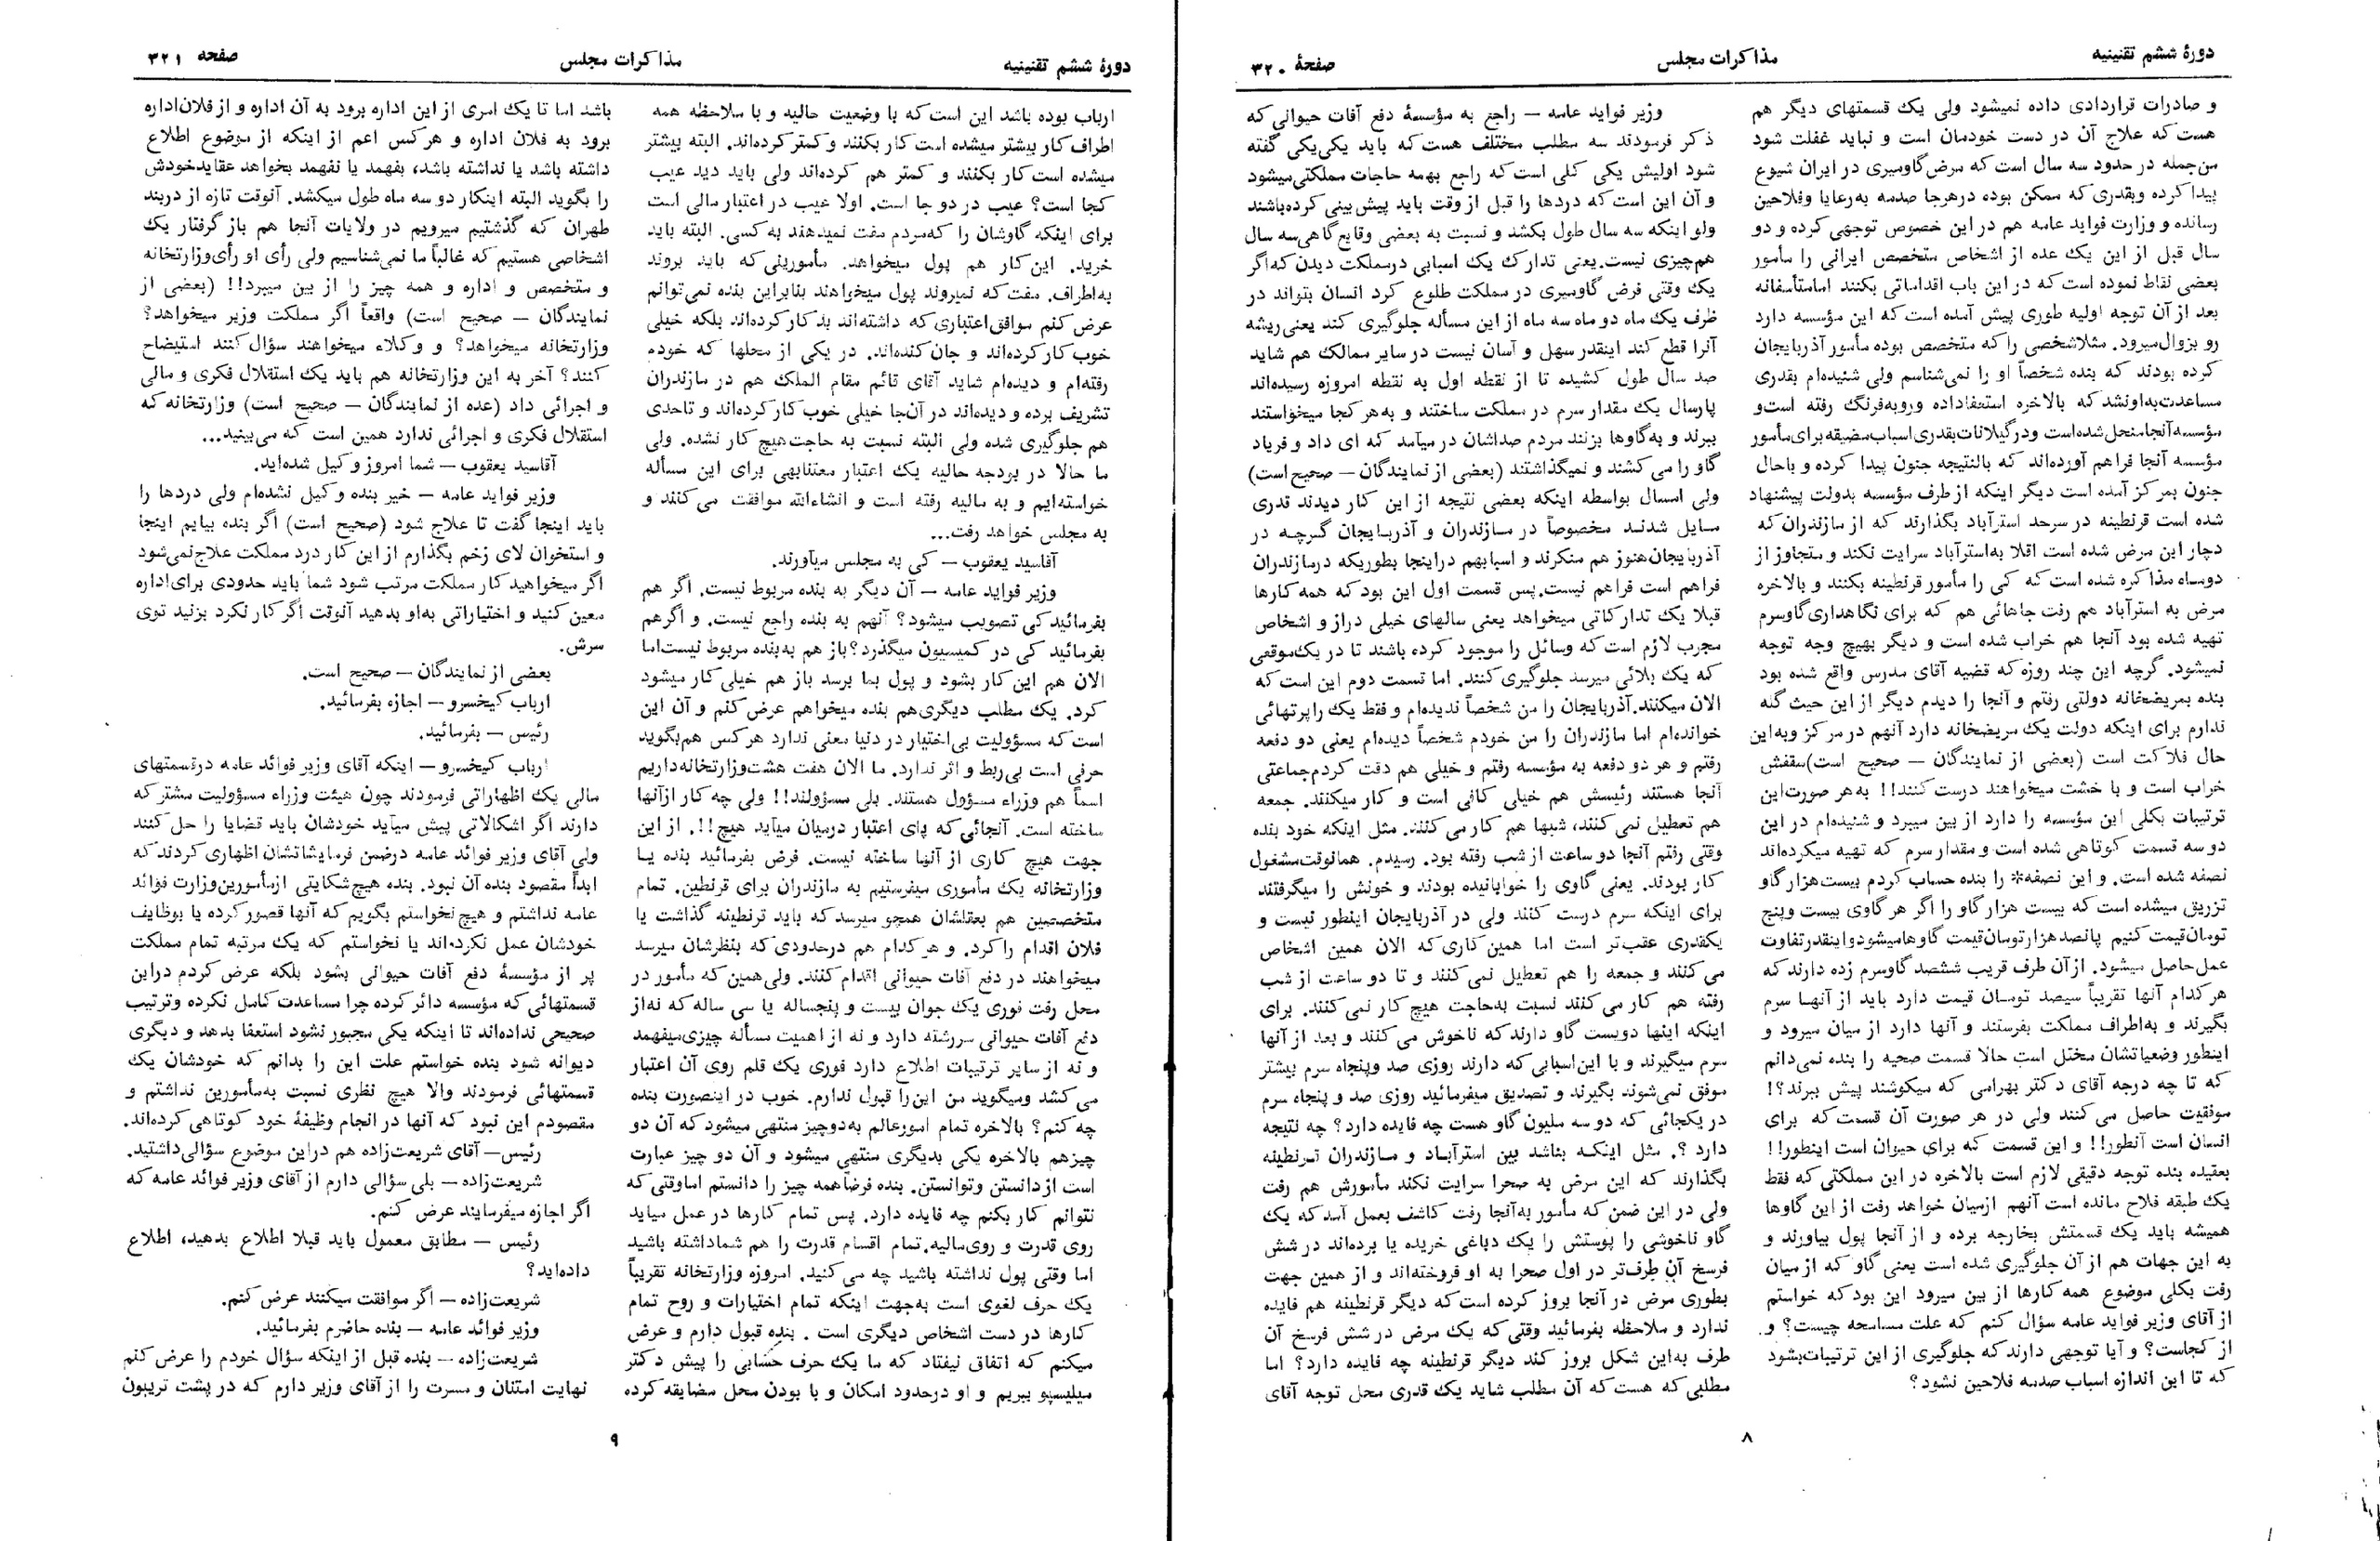 دورهٔ ششم تقنینیه
مذاکرات مجلس
صفحهٔ ۳۲۰
و صادرات قراردادی داده نمیشود ولی یک قسمتهای دیگر هم
هست که علاج آن در دست خودمان است و نباید غفلت شود
من‌جمله در حدود سه سال است که مرض گاومیری در ایران شیوع
پیدا کرده و بقدری که ممکن بوده در هرجا صدمه به رعایا و فلاحین
رسانده و وزارت فواید عامه هم در این خصوص توجهی کرده و دو
سال قبل از این یک عده از اشخاص متخصص ایرانی را مأمور
بعضی نقاط نموده است که در این باب اقداماتی بکنند اما متأسفانه
بعد از آن توجه اولیه طوری پیش آمده است که این مؤسسه دارد
رو بزوال میرود. مثلا شخصی را که متخصص بوده مأمور آذربایجان
کرده بودند که بنده شخصاً او را نمی‌شناسم ولی شنیده‌ام بقدری
مساعدت به او نشد که بالاخره استعفا داده و رو به فرنگ رفته است و
مؤسسه آنجا منحل شده است و در گیلانات بقدری اسباب مضیقه برای مأمور
مؤسسه آنجا فراهم آورده‌اند که بالنتیجه جنون پیدا کرده و باحال
جنون بمرکز آمده است دیگر اینکه از طرف مؤسسه بدولت پیشنهاد
شده است قرنطینه در سرحد استرآباد بگذارند که از مازندران که
دچار این مرض شده است اقلا به استرآباد سرایت نکند و متجاوز از
دوساه مذاکره شده است که کی را مأمور قرنطینه بکنند و بالاخره
مرض به استرآباد هم رفت جاهائی هم که برای نگاهداری گاو سرم
تهیه شده بود آنجا هم خراب شده است و دیگر بهیچ وجه توجه
نمیشود. گرچه این چند روزه که قضیه آقای مدرس واقع شده بود
بنده بمریضخانه دولتی رفتم و آنجا را دیدم دیگر از این حیث گله
ندارم برای اینکه دولت یک مریضخانه دارد آنهم در مرکز و به این
حال فلاکت است (بعضی از نمایندگان – صحیح است) سقفش
خراب است و با خشت میخواهند درست کنند!! به هر صورت این
ترتیبات بکلی این مؤسسه را دارد از بین میبرد و شنیده‌ام در این
دو سه قسمت کوتاهی شده است و مقدار سرم که تهیه میکرده‌اند
نصفه شده است. و این نصفه* را بنده حساب کردم بیست هزار گاو
تزریق میشده است که بیست هزار گاو را اگر هر گاوی بیست و پنج
تومان قیمت کنیم پانصد هزار تومان قیمت گاوها میشود و اینقدر تفاوت
عمل حاصل میشود. از آن طرف قریب ششصد گاو سرم زده دارند که
هر کدام آنها تقریباً سیصد تومان قیمت دارد باید از آنها سرم
بگیرند و به اطراف مملکت بفرستند و آنها دارد از میان میرود و
اینطور وضعیاتشان مختل است حالا قسمت صحیه را بنده نمی‌دانم
که تا چه درجه آقای دکتر بهرامی که میکوشند پیش ببرند؟!
موفقیت حاصل می‌کنند ولی در هر صورت آن قسمت که برای
انسان است آنطور!! و این قسمت که برای حیوان است اینطور!!
بعقیده بنده توجه دقیقی لازم است بالاخره در این مملکتی که فقط
یک طبقه فلاح مانده است آنهم از میان خواهد رفت از این گاوها
همیشه باید یک قسمتش بخارجه برده و از آنجا پول بیاورند و
به این جهات هم از آن جلوگیری شده است یعنی گاو که از میان
رفت بکلی موضوع همه کارها از بین میرود این بود که خواستم
از آقای وزیر فواید عامه سؤال کنم که علت مسامحه چیست؟ و
از کجاست؟ و آیا توجهی دارند که جلوگیری از این ترتیبات بشود
که تا این اندازه اسباب صدمه فلاحین نشود؟
وزیر فواید عامه – راجع به مؤسسهٔ دفع آفات حیوانی که
ذکر فرمودند سه مطلب مختلف هست که باید یکی‌یکی گفته
شود اولیش یکی کلی است که راجع بهمه حاجات مملکتی میشود
و آن این است که دردها را قبل از وقت باید پیش‌بینی کرده باشند
ولو اینکه سه سال طول بکشد و نسبت به بعضی وقایع گاهی سه سال
هم چیزی نیست. یعنی تدارک یک اسبابی در مملکت دیدن که اگر
یک وقتی فرض گاومیری در مملکت طلوع کرد انسان بتواند در
ظرف یک ماه دو ماه سه ماه از این مسأله جلوگیری کند یعنی ریشه
آنرا قطع کند اینقدر سهل و آسان نیست در سایر ممالک هم شاید
صد سال طول کشیده تا از نقطه اول به نقطه امروزه رسیده‌اند
پارسال یک مقدار سرم در مملکت ساختند و به هر کجا میخواستند
ببرند و به گاوها بزنند مردم صداشان در میآمد که ای داد و فریاد
گاو را می‌کشند و نمیگذاشتند (بعضی از نمایندگان – صحیح است)
ولی امسال بواسطه اینکه بعضی نتیجه از این کار دیدند قدری
مایل شدند مخصوصاً در مازندران و آذربایجان گرچه در
آذربایجان هنوز هم منکرند و اسبابهم در اینجا بطوریکه در مازندران
فراهم است فراهم نیست. پس قسمت اول این بود که همه کارها
قبلا یک تدارکاتی میخواهد یعنی سالهای خیلی دراز و اشخاص
مجرب لازم است که وسائل را موجود کرده باشند تا در یک موقعی
که یک بلائی میرسد جلوگیری کنند. اما قسمت دوم این است که
الان میکنند. آذربایجان را من شخصاً ندیده‌ام و فقط یک راپرتهائی
خوانده‌ام اما مازندران را من خودم شخصاً دیده‌ام یعنی دو دفعه
رفتم و هر دو دفعه به مؤسسه رفتم و خیلی هم دقت کردم جماعتی
آنجا هستند رئیسش هم خیلی کافی است و کار میکنند. جمعه
هم تعطیل نمی‌کنند، شبها هم کار می‌کنند. مثل اینکه خود بنده
وقتی رفتم آنجا دو ساعت از شب رفته بود. رسیدم. همانوقت مشغول
کار بودند. یعنی گاوی را خوابانیده بودند و خونش را میگرفتند
برای اینکه سرم درست کنند ولی در آذربایجان اینطور نیست و
یکقدری عقب‌تر است اما همین کاری که الان همین اشخاص
می‌کنند و جمعه را هم تعطیل نمی‌کنند و تا دو ساعت از شب
رفته هم کار می‌کنند نسبت به حاجت هیچ کار نمی‌کنند. برای
اینکه اینها دویست گاو دارند که ناخوش می‌کنند و بعد از آنها
سرم میگیرند و با این اسبابی که دارند روزی صد و پنجاه سرم بیشتر
موفق نمی‌شوند بگیرند و تصدیق میفرمائید روزی صد و پنجاه سرم
در یکجائی که دو سه ملیون گاو هست چه فایده دارد؟ چه نتیجه
دارد ؟. مثل اینکه بناشد بین استرآباد و مازندران قرنطینه
بگذارند که این مرض به صحرا سرایت نکند مأمورش هم رفت
ولی در این ضمن که مأمور به آنجا رفت کاشف بعمل آمد که یک
گاو ناخوشی را پوستش را یک دباغی خریده یا برده‌اند در شش
فرسخ آن طرف‌تر در اول صحرا به او فروخته‌اند و از همین جهت
بطوری مرض در آنجا بروز کرده است که دیگر قرنطینه هم فایده
ندارد و ملاحظه بفرمائید وقتی که یک مرض در شش فرسخ آن
طرف به این شکل بروز کند دیگر قرنطینه چه فایده دارد؟ اما
مطلبی که هست که آن مطلب شاید یک قدری محل توجه آقای
۸
دورهٔ ششم تقنینیه
مذاکرات مجلس
صفحه ۳۲۱
ارباب بوده باشد این است که با وضعیت حالیه و با ملاحظه همه
اطراف کار بیشتر میشده است کار بکنند و کمتر کرده‌اند. البته بیشتر
میشده است کار بکنند و کمتر هم کرده‌اند ولی باید دید عیب
کجا است؟ عیب در دو جا است. اولا عیب در اعتبار مالی است
برای اینکه گاوشان را که مردم مفت نمیدهند به کسی. البته باید
خرید. این کار هم پول میخواهد. مأمورینی که باید بروند
به اطراف. مفت که نمیروند پول میخواهند بنابراین بنده نمی‌توانم
عرض کنم موافق اعتباری که داشته‌اند بد کار کرده‌اند بلکه خیلی
خوب کار کرده‌اند و جان کنده‌اند. در یکی از محلها که خودم
رفته‌ام و دیده‌ام شاید آقای قائم مقام الملک هم در مازندران
تشریف برده و دیده‌اند در آن‌جا خیلی خوب کار کرده‌اند و تاحدی
هم جلوگیری شده ولی البته نسبت به حاجت هیچ کار نشده. ولی
ما حالا در بودجه حالیه یک اعتبار معتنابهی برای این مسأله
خواسته‌ایم و به مالیه رفته است و انشاءالله موافقت می‌کنند و
به مجلس خواهد رفت...
آقاسید یعقوب – کی به مجلس میآورند.
وزیر فواید عامه – آن دیگر به بنده مربوط نیست. اگر هم
بفرمائید کی تصویب میشود؟ آنهم به بنده راجع نیست. و اگر هم
بفرمائید کی در کمیسیون میگذرد؟ باز هم به بنده مربوط نیست اما
الان هم این کار بشود و پول بما برسد باز هم خیلی کار میشود
کرد. یک مطلب دیگری هم بنده میخواهم عرض کنم و آن این
است که مسؤولیت بی‌اختیار در دنیا معنی ندارد هر کس هم بگوید
حرفی است بی‌ربط و اثر ندارد. ما الان هفت هشت وزارتخانه داریم
اسماً هم وزراء مسؤول هستند. بلی مسؤولند!! ولی چه کار از آنها
ساخته است. آنجائی که پای اعتبار درمیان میآید هیچ!!. از این
جهت هیچ کاری از آنها ساخته نیست. فرض بفرمائید بنده یا
وزارتخانه یک مأموری میفرستیم به مازندران برای قرنطین. تمام
متخصصین هم بعقلشان همچو میرسد که باید قرنطینه گذاشت یا
فلان اقدام را کرد. و هر کدام هم درحدودی که بنظرشان میرسد
میخواهند در دفع آفات حیوانی اقدام کنند. ولی همین که مأمور در
محل رفت فوری یک جوان بیست و پنجساله یا سی ساله که نه از
دفع آفات حیوانی سررشته دارد و نه از اهمیت مسأله چیزی میفهمد
و نه از سایر ترتیبات اطلاع دارد فوری یک قلم روی آن اعتبار
می‌کشد و میگوید من این را قبول ندارم. خوب در اینصورت بنده
چه کنم؟ بالاخره تمام امور عالم به دو چیز منتهی میشود که آن دو
چیز هم بالاخره یکی بدیگری منتهی میشود و آن دو چیز عبارت
است از دانستن و توانستن. بنده فرضاً همه چیز را دانستم اما وقتی که
نتوانم کار بکنم چه فایده دارد. پس تمام کارها در عمل میاید
روی قدرت و روی مالیه. تمام اقسام قدرت را هم شما داشته باشید
اما وقتی پول نداشته باشید چه می‌کنید. امروزه وزارتخانه تقریباً
یک حرف لغوی است به‌جهت اینکه تمام اختیارات و روح تمام
کارها در دست اشخاص دیگری است . بنده قبول دارم و عرض
میکنم که اتفاق نیفتاد که ما یک حرف حسابی را پیش دکتر
میلیسپو ببریم و او درحدود امکان و با بودن محل مضایقه کرده
باشد اما تا یک امری از این اداره برود به آن اداره و از فلان اداره
برود به فلان اداره و هر کس اعم از اینکه از موضوع اطلاع
داشته باشد یا نداشته باشد، بفهمد یا نفهمد بخواهد عقاید خودش
را بگوید البته اینکار دو سه ماه طول میکشد. آنوقت تازه از دربند
طهران که گذشتیم میرویم در ولایات آنجا هم باز گرفتار یک
اشخاصی هستیم که غالباً ما نمی‌شناسیم ولی رأی او رأی وزارتخانه
و متخصص و اداره و همه چیز را از بین میبرد!! (بعضی از
نمایندگان – صحیح است) واقعاً اگر مملکت وزیر میخواهد؟
وزارتخانه میخواهد؟ و وکلاء میخواهند سؤال کنند استیضاح
کنند؟ آخر به این وزارتخانه هم باید یک استقلال فکری و مالی
و اجرائی داد (عده از نمایندگان – صحیح است) وزارتخانه که
استقلال فکری و اجرائی ندارد همین است که می‌بینید...
آقاسید یعقوب – شما امروز وکیل شده‌اید.
وزیر فواید عامه – خیر بنده وکیل نشده‌ام ولی دردها را
باید اینجا گفت تا علاج شود (صحیح است) اگر بنده بیایم اینجا
و استخوان لای زخم بگذارم از این کار درد مملکت علاج نمی‌شود
اگر میخواهید کار مملکت مرتب شود شما باید حدودی برای اداره
معین کنید و اختیاراتی به او بدهید آنوقت اگر کار نکرد بزنید توی
سرش.
بعضی از نمایندگان – صحیح است.
ارباب کیخسرو – اجازه بفرمائید.
رئیس – بفرمائید.
ارباب کیخسرو – اینکه آقای وزیر فوائد عامه درقسمتهای
مالی یک اظهاراتی فرمودند چون هیئت وزراء مسؤولیت مشترکه
دارند اگر اشکالاتی پیش میآید خودشان باید قضایا را حل کنند
ولی آقای وزیر فوائد عامه درضمن فرمایشاتشان اظهاری کردند که
ابداً مقصود بنده آن نبود. بنده هیچ شکایتی از مأمورین وزارت فوائد
عامه نداشتم و هیچ نخواستم بگویم که آنها قصور کرده یا بوظایف
خودشان عمل نکرده‌اند یا نخواستم که یک مرتبه تمام مملکت
پر از مؤسسهٔ دفع آفات حیوانی بشود بلکه عرض کردم دراین
قسمتهائی که مؤسسه دائر کرده چرا مساعدت کامل نکرده و ترتیب
صحیحی نداده‌اند تا اینکه یکی مجبور نشود استعفا بدهد و دیگری
دیوانه شود بنده خواستم علت این را بدانم که خودشان یک
قسمتهائی فرمودند والا هیچ نظری نسبت به مأمورین نداشتم و
مقصودم این نبود که آنها در انجام وظیفهٔ خود کوتاهی کرده‌اند.
رئیس– آقای شریعت‌زاده هم دراین موضوع سؤالی داشتید.
شریعت‌زاده – بلی سؤالی دارم از آقای وزیر فوائد عامه که
اگر اجازه میفرمایند عرض کنم.
رئیس – مطابق معمول باید قبلا اطلاع بدهید، اطلاع
داده‌اید؟
شریعت‌زاده – اگر موافقت میکنند عرض کنم.
وزیر فوائد عامه – بنده حاضرم بفرمائید.
شریعت‌زاده – بنده قبل از اینکه سؤال خودم را عرض کنم
نهایت امتنان و مسرت را از آقای وزیر دارم که در پشت تریبون
۹